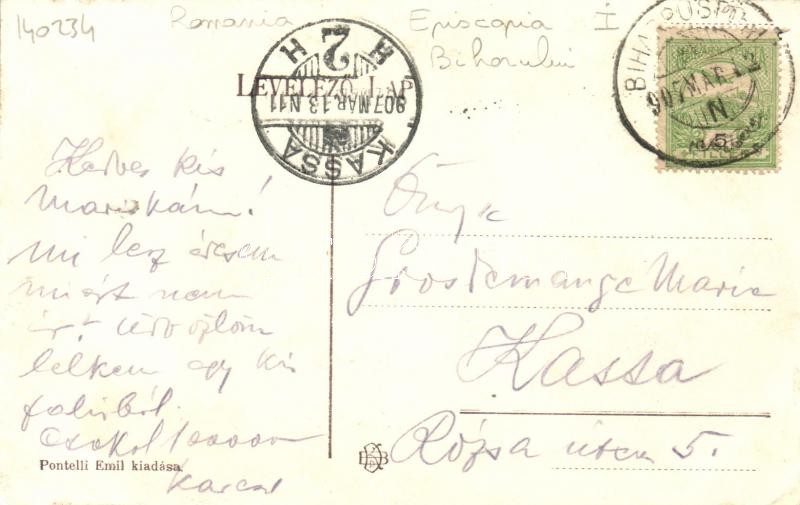 140234
Romania
Episcopia I
Bihorului
LEVELEZŐ LAP
KASSA
907 MAR. 13. N11
H 2 H
BIHARPÜSPÖKI
907 MAR. 12
N
5
Kedves kis
Mariskám!
mi lesz
miért nem
ír? üdvözlöm
lelkem egy kis
faluból.
Csokol 100000
Karcsi
Pontelli Emil kiadása.
Grosdemange Maria
Kassa
Rózsa utca 5.